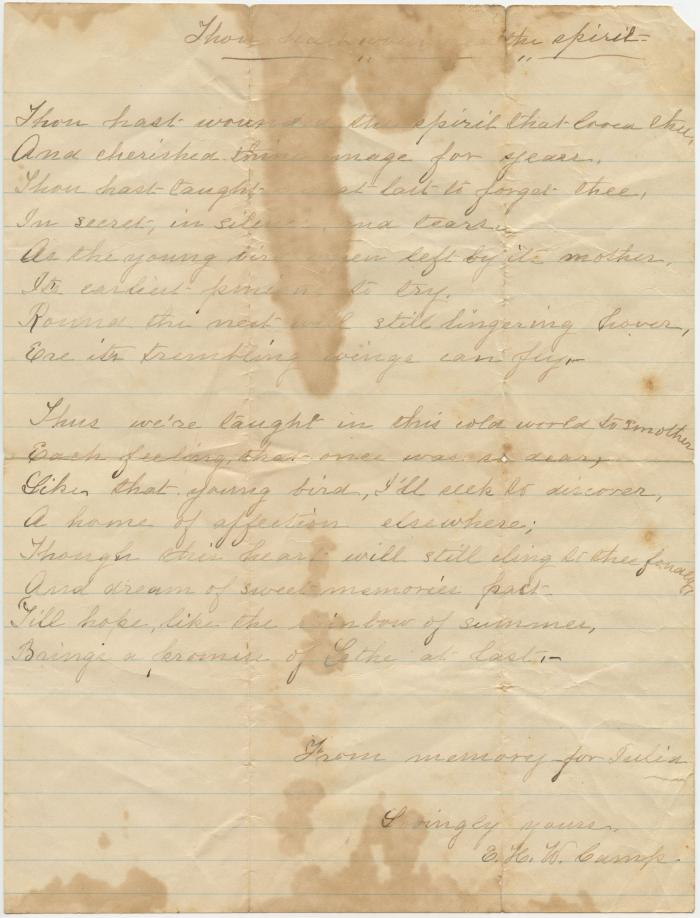 Thou hast wounded the spirit
Thou hast wounded the spirit that loved thee,
And cherished thine image for years,
Thou hast taught me at last to forget thee,
In secret, in silence, and tears,
As the young bird when left by its mother,
Its earliest pinions to try,
Round the nest will still lingering hover,
Ere its trembling wings can fly,—
Thus we're taught in this cold world to smother
Each feeling, that once was so dear,
Like, that young bird, I'll seek to discover,
A home of affection elsewhere;
Though this heart will still cling to thee fondly
And dream of sweet memories past
Till hope, like the rainbow of summer,
Brings a promise of Lethe at last,—
From memory for Julia
Lovingly yours,
E. H. W. Camp.